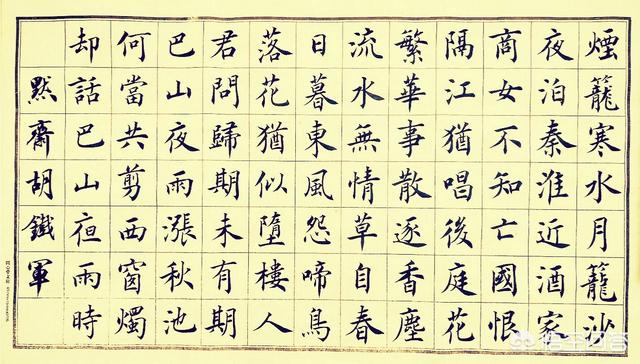 煙籠寒水月籠沙
夜泊秦淮近酒家
商女不知亡國恨
隔江猶唱後庭花
繁華事散逐香塵
流水無情草自春
日暮東風怨啼鳥
落花猶似墮樓人
君問歸期未有期
巴山夜雨漲秋池
何當共剪西窗燭
却話巴山夜雨時
默齋胡鐵軍